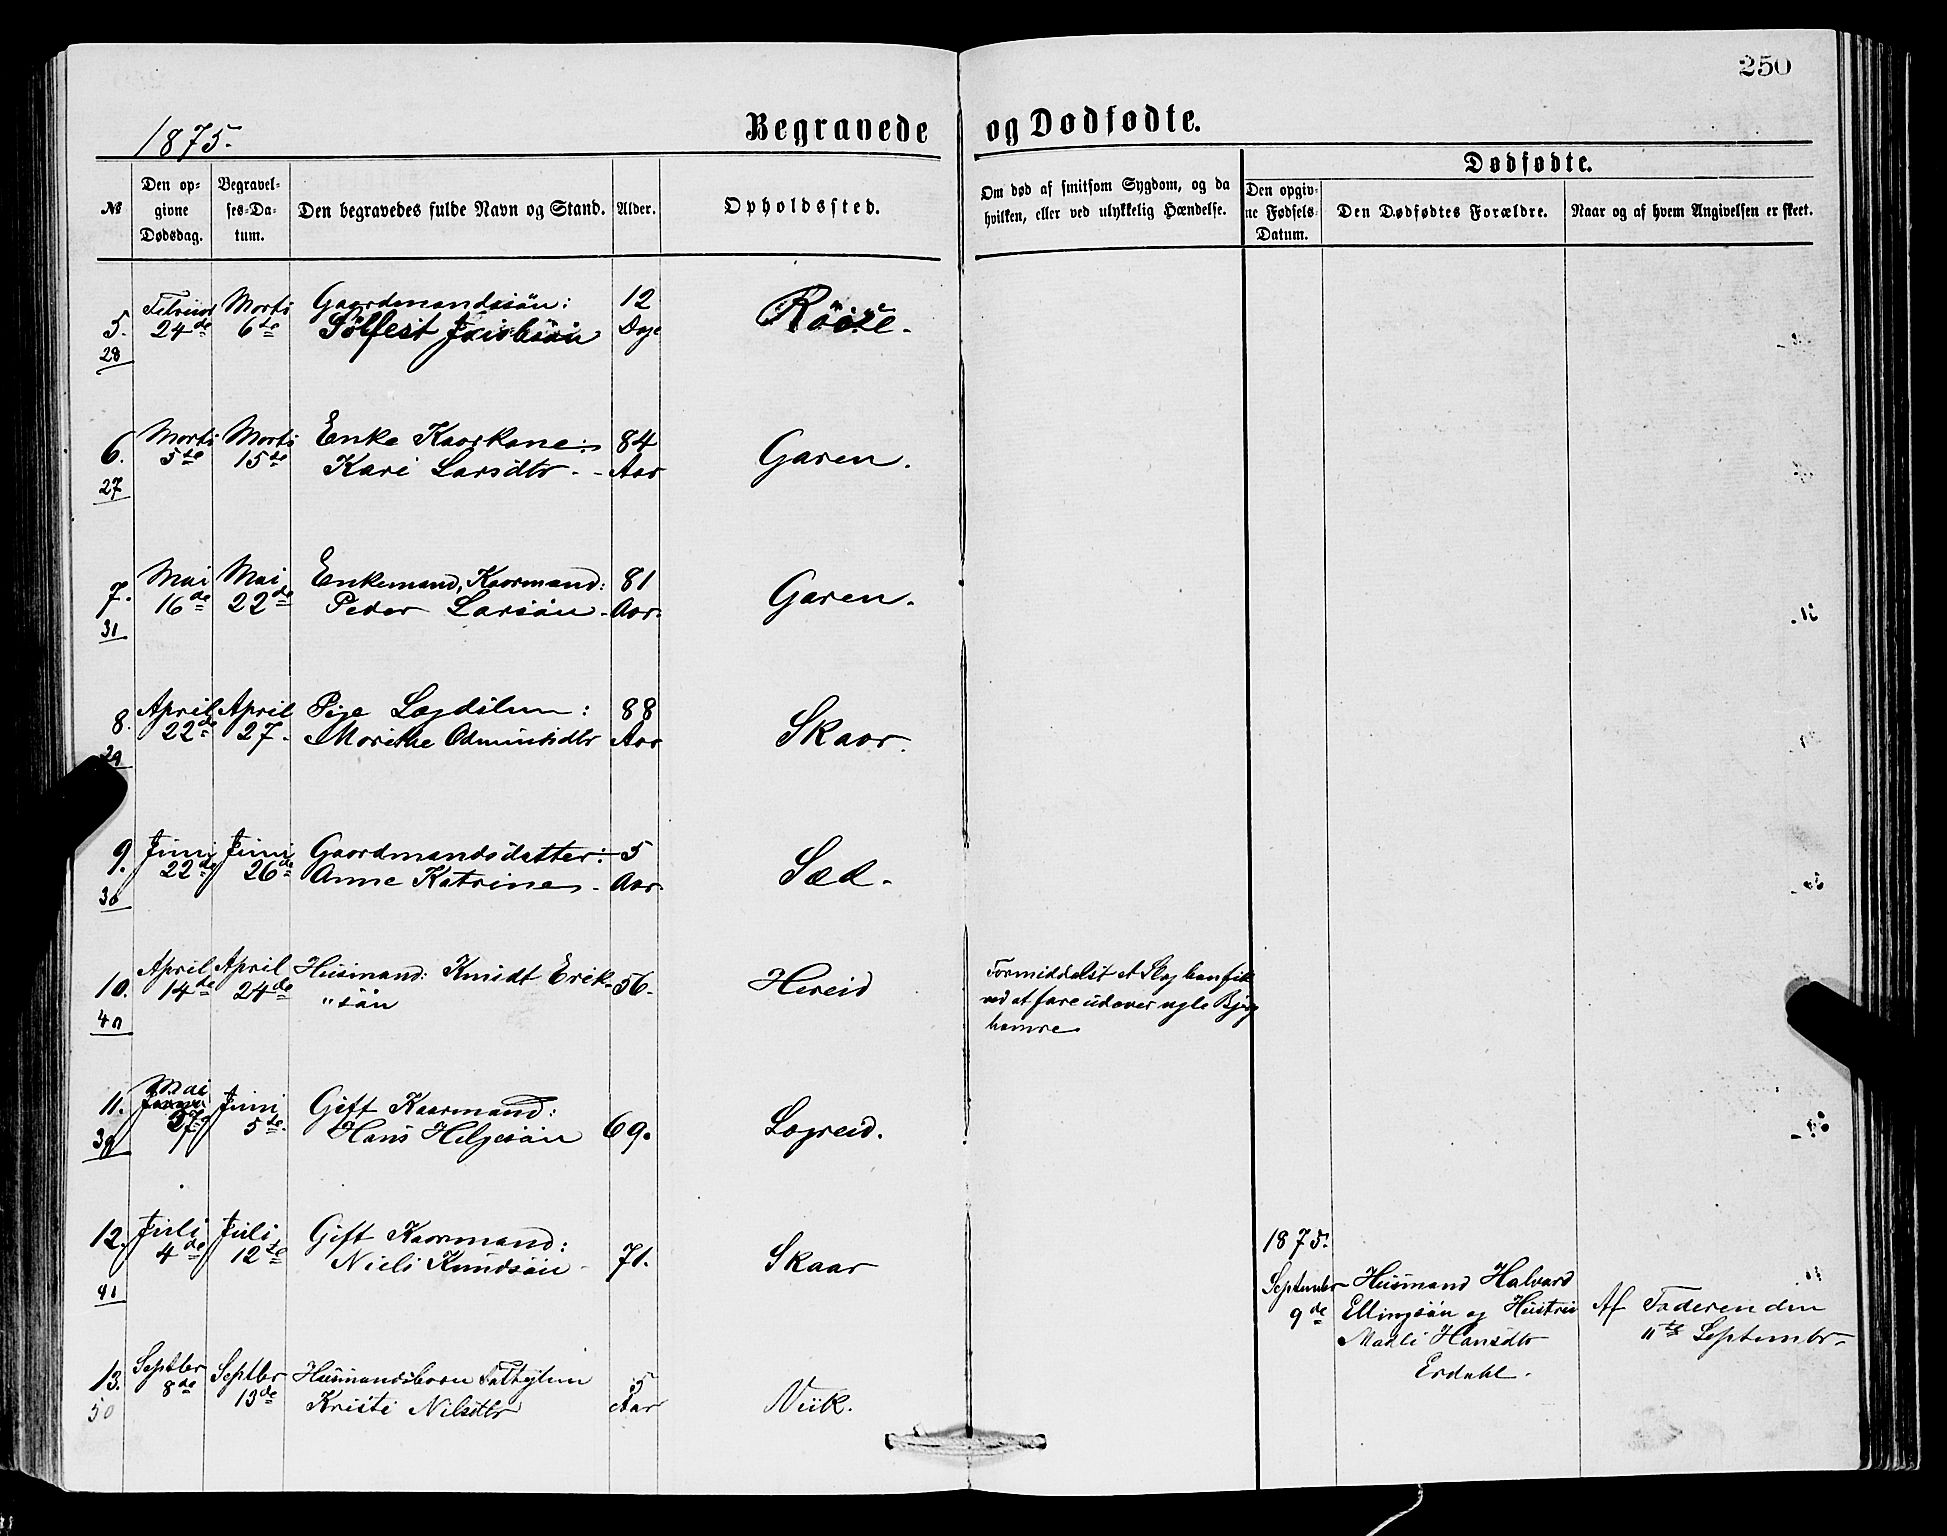 250
1875.
Begravede og Dødfødte.
Dødfødte.
№
Den op-
givne
Dødsdag.
Begravel-
ses-Da-
tum.
Den begravedes fulde Navn og Stand.
Alder.
Opholdssted.
Om død af smitsom Sygdom, og da
hvilken, eller ved ulykkelig Hændelse.
Den opgiv-
ne Fødsels-
Datum.
Den Dødfødtes Forældre.
Naar og af hvem Angivelsen er skeet.
Marts Gaardmandssön: 12
5. 24de 6te Sölfest Dage
28
Marts Marts Enke Kaarkone: 84 Garen.
6. 5te 15de Kari Larsdtr. Aar
27
Mai Mai Enkemand, Kaarmand: 81 Garen.
7. 16de 22de Peder Larsön Aar.
31
April April Pige 88 Skaar.
8. 22de 27. Aar
29
Juni Juni Gaardmandsdatter: 5 Sæd.
9. 22de 26de Anne Katrine Aar
30
April April Husmand: Knudt Erik- 56. Hereid
10. 14de 24de "sön
40
Formiddelst et Slag han fik
ved at fare udover
hamre
Mai Juni Gift Kaarmand:
11. 27. 5te Hans Helgesön 69. Legreid.
39
12. Juli Juli Gift Kaarmand:
4de 12te Niels Knudsön 71. Skaar
41
1875.
September Husmand Halvard
9de Ellingsön og Hustru Af Faderen den
Madli Hansdtr 11te September
Erdahl.
13. Septbr Septbr Husmandsbarn 5 Viik.
8de 13de Kristi Nilsdtr Aar
50